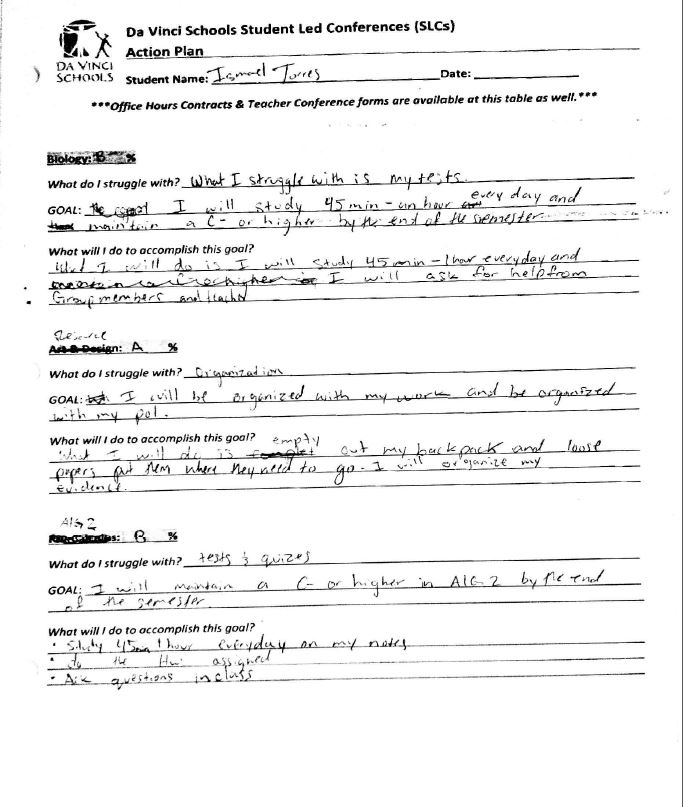 Da Vinci Schools Student Led Conferences (SLCs)
Action Plan
DA VINCI
SCHOOLS
Student Name: Ismael Torres Date:
***Office Hours Contracts & Teacher Conference forms are available at this table as well.***
Biology: B %
What do I struggle with? What I struggle with is my tests.
GOAL: I will study 45 min - an hour every day and
maintain a C- or higher by the end of the semester
What will I do to accomplish this goal?
What I will do is I will study 45 min - 1 hour everyday and
I will ask for help from
Group members and teacher
Resource
Art & Design: A %
What do I struggle with? Organization
GOAL: I will be organized with my work and be organized
with my pol.
What will I do to accomplish this goal? empty
What I will do is out my backpack and loose
papers put them where they need to go. I will organize my
Evidence.
AlG 2
Pre-Calculus: B %
What do I struggle with? tests & quizes
GOAL: I will maintain a C- or higher in AlG 2 by the end
of the semester.
What will I do to accomplish this goal?
• Study 45min 1 hour everyday on my notes
• do the Hw assigned
• Ask questions in class